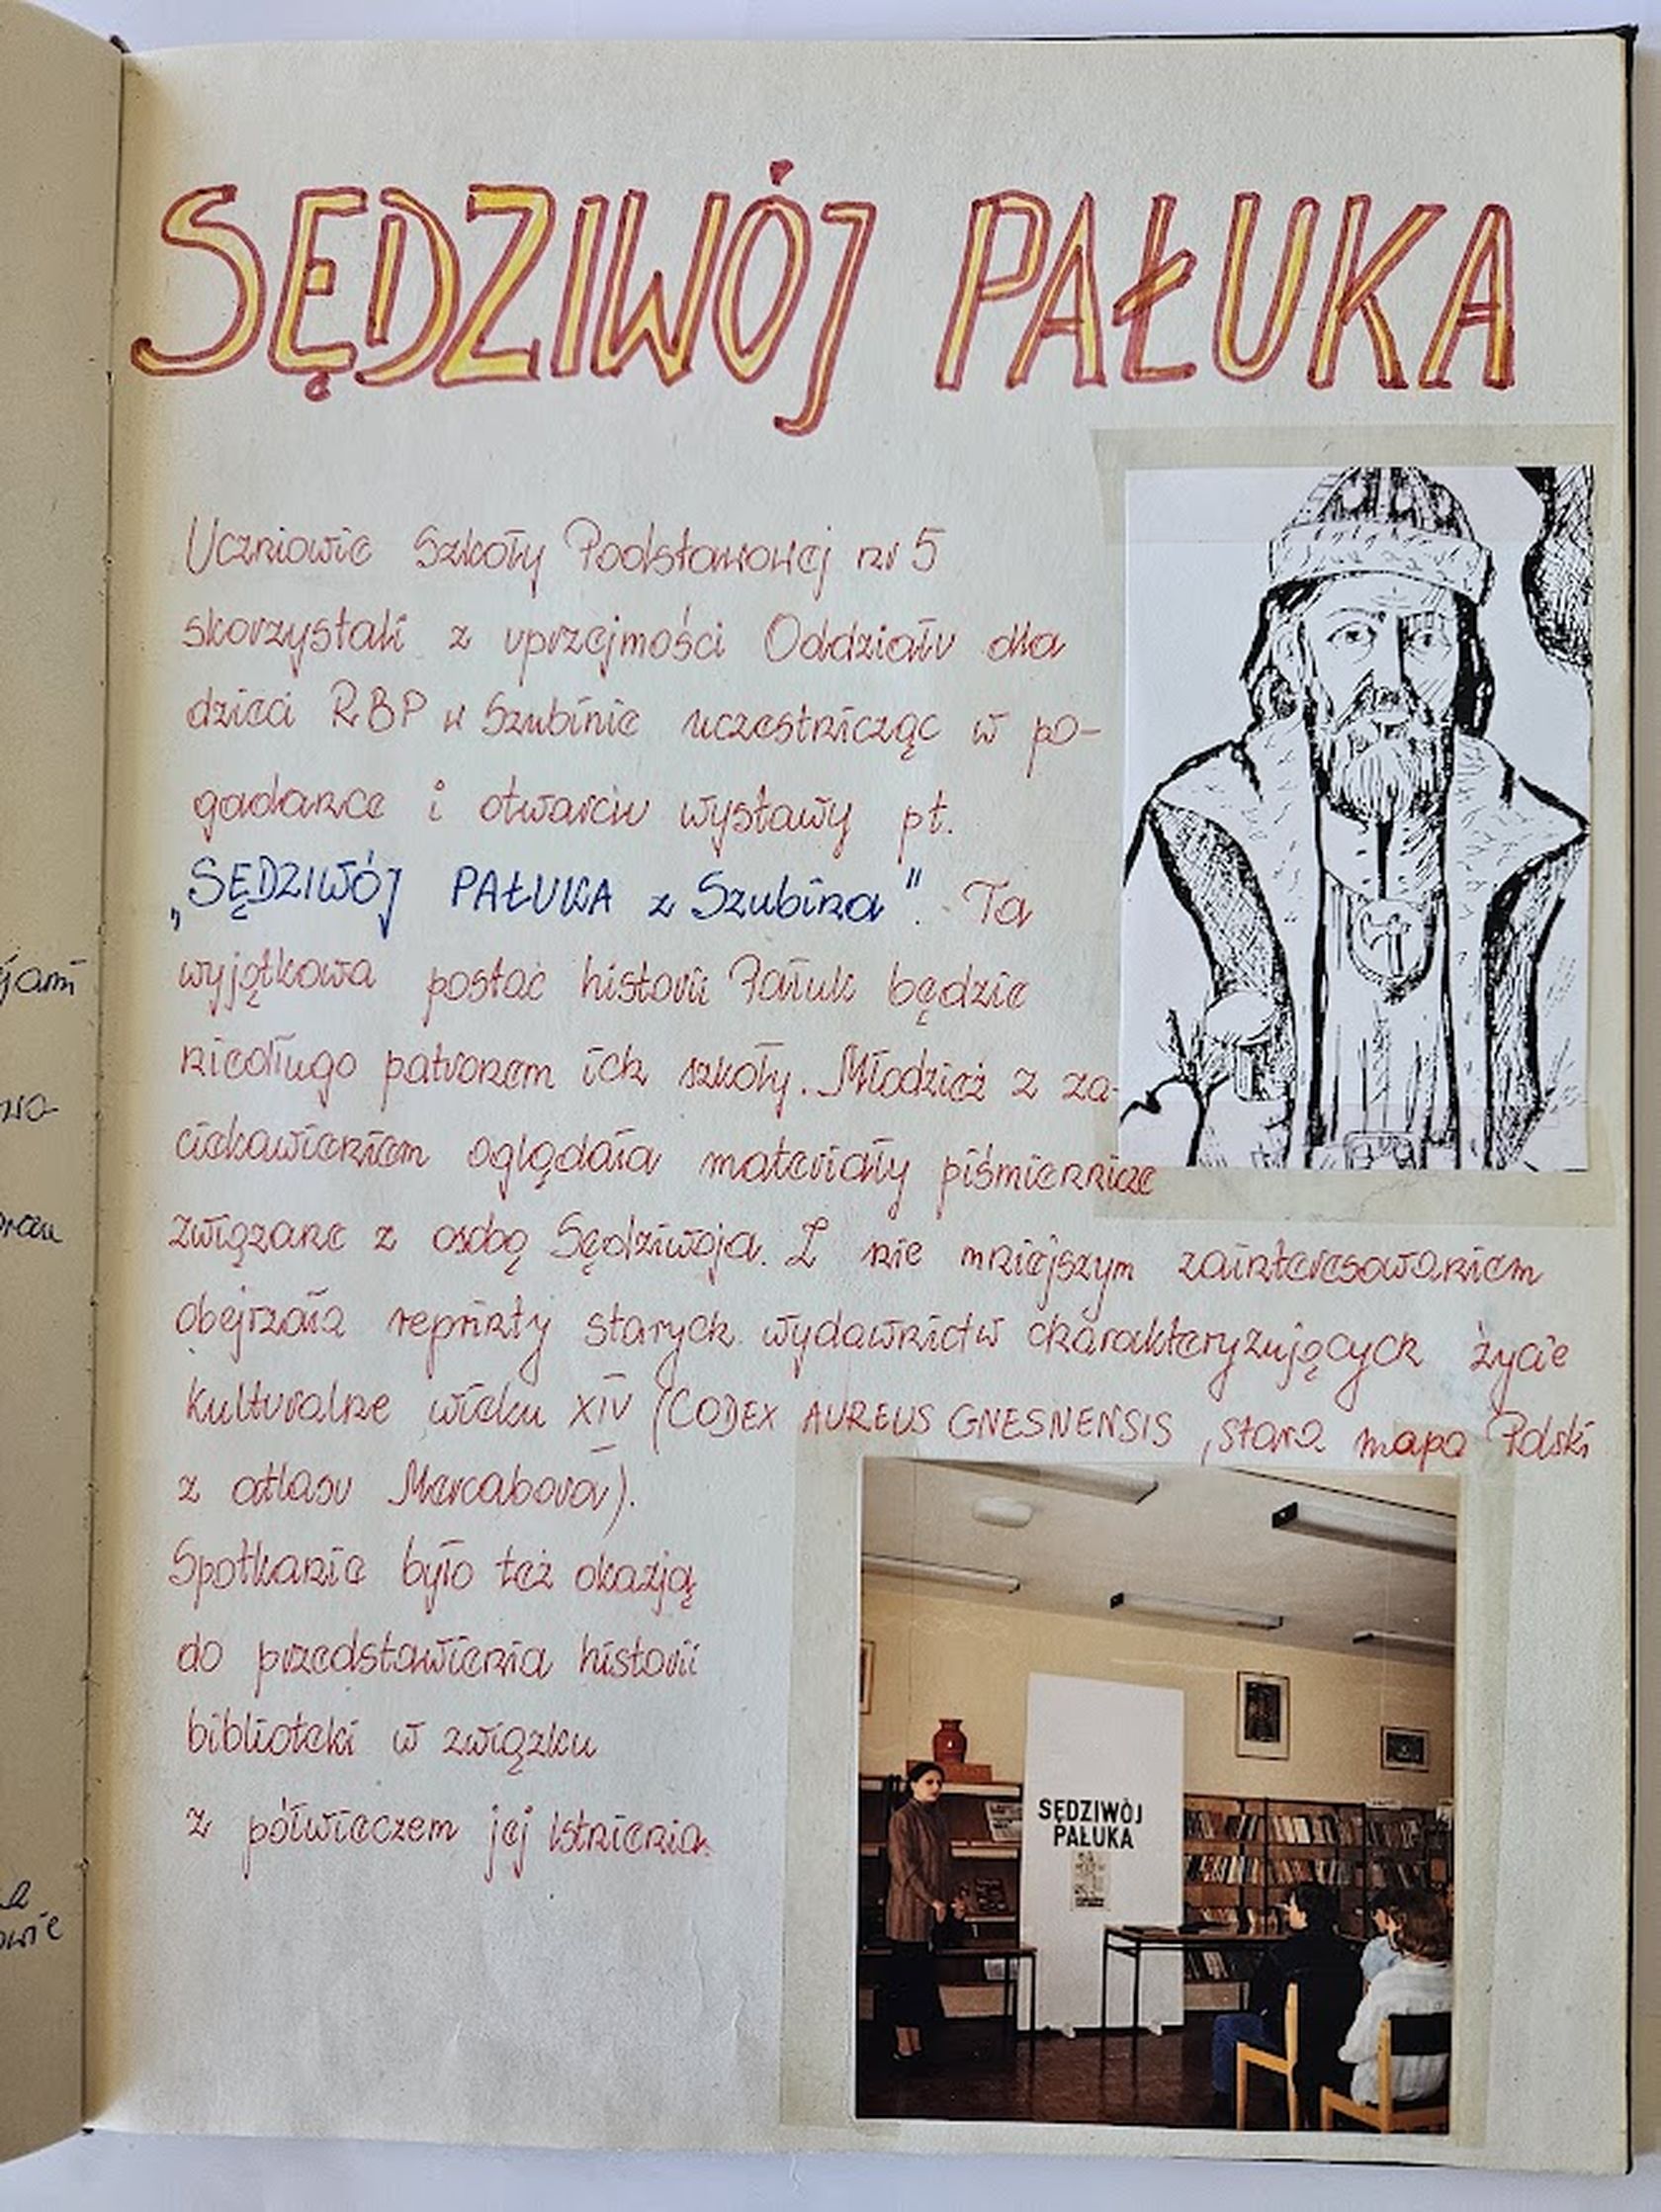 SĘDZIWÓJ PAŁUKA
Uczniowie Szkoły Podstawowej nr 5
skorzystali z uprzejmości Oddziału dla
dzieci RBP w Szubinie uczestnicząc w po-
gadance i otwarciu wystawy pt.
„SĘDZIWÓJ PAŁUKA z Szubina". Ta
wyjątkowa postać historii Pałuk będzie
niedługo patronem ich szkoły. Młodzież z za-
ciekawieniem oglądała materiały piśmiennicze
związane z osobą Sędziwoja. Z nie mniejszym zainteresowaniem
obejrzała reprinty starych wydawnictw charakteryzujących życie
kulturalne wieku XIV (CODEX AUREUS GNESNENSIS, stara mapa Polski
z atlasu Marcabora).
Spotkanie było też okazją
do przedstawienia historii
biblioteki w związku
z półwieczem jej istnienia.
SĘDZIWÓJ
PAŁUKA
jami
owie